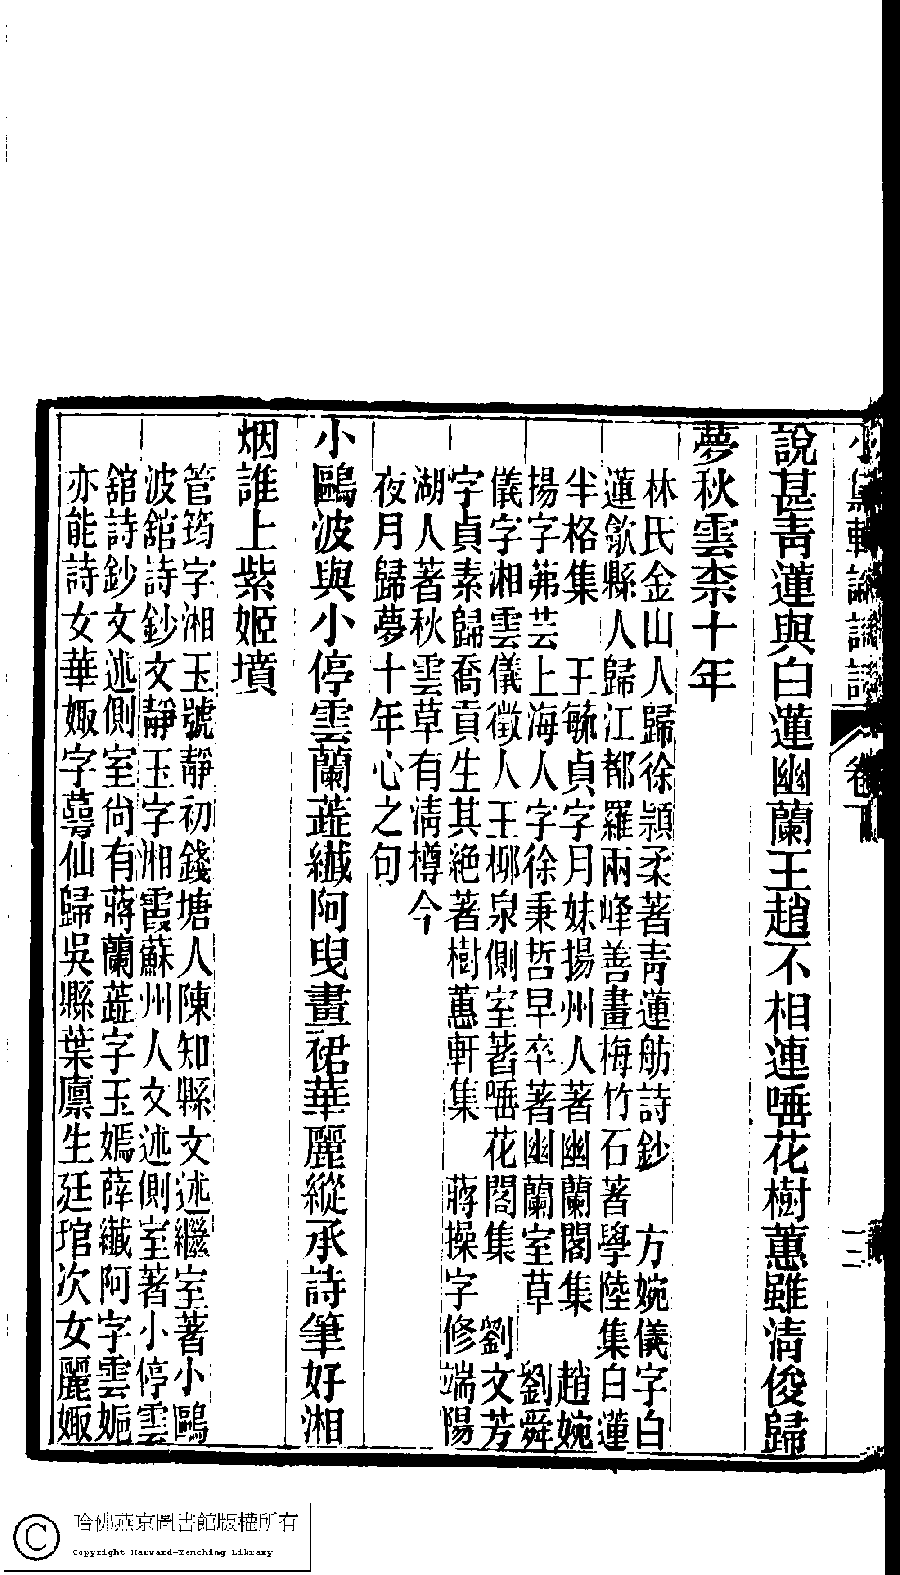 說甚靑蓮與白蓮幽蘭王趙不相連唾花樹蕙雖淸俊歸
夢秋雲柰十年
林氏金山人歸徐頴柔著靑蓮舫詩鈔　方婉儀字白
蓮歙縣人歸江都羅兩峰善畫梅竹石著學陸集白蓮
半格集　王毓貞字月妹揚州人著幽蘭閣集　趙婉
揚字茀芸上海人字徐秉哲早卒著幽蘭室草　劉舜
儀字湘雲儀徵人王栁泉側室著唾花閣集　劉文芳
字貞素歸喬貢生其絶著樹蕙軒集　蔣操字修端陽
湖人著秋雲草有淸樽今
夜月歸夢十年心之句
小鷗波與小停雲蘭蕋纖阿曳畫裙華麗縱承詩筆好湘
烟誰上紫姬墳
管筠字湘玉號靜初錢塘人陳知縣文述繼室著小鷗
波舘詩鈔文靜玉字湘霞蘇州人文述側室著小停雲
舘詩鈔文述側室尙有蔣蘭蕋字玉嫣薛纖阿字雲姬
亦能詩女華娵字蕚仙歸吳縣葉廪生廷琯次女麗娵
卷
一三
哈佛燕京圖書館版權所有
Copyright Harvard-Yenching Library